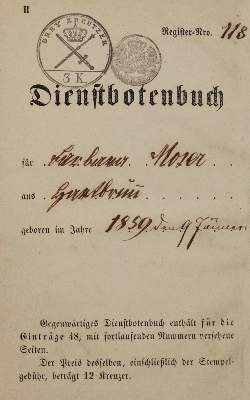 II
DREY KREUTZER
3 K
Register-Nro. 118
Dienstbotenbuch
für Barbara Moser
aus
geboren im Jahre 1859 den 9 Jänner
Gegenwärtiges Dienstbotenbuch enthält für die
Einträge 48, mit fortlaufenden Nummern versehene
Seiten.
Der Preis desselben, einschließlich der Stempel-
gebühr, beträgt 12 Kreuzer.